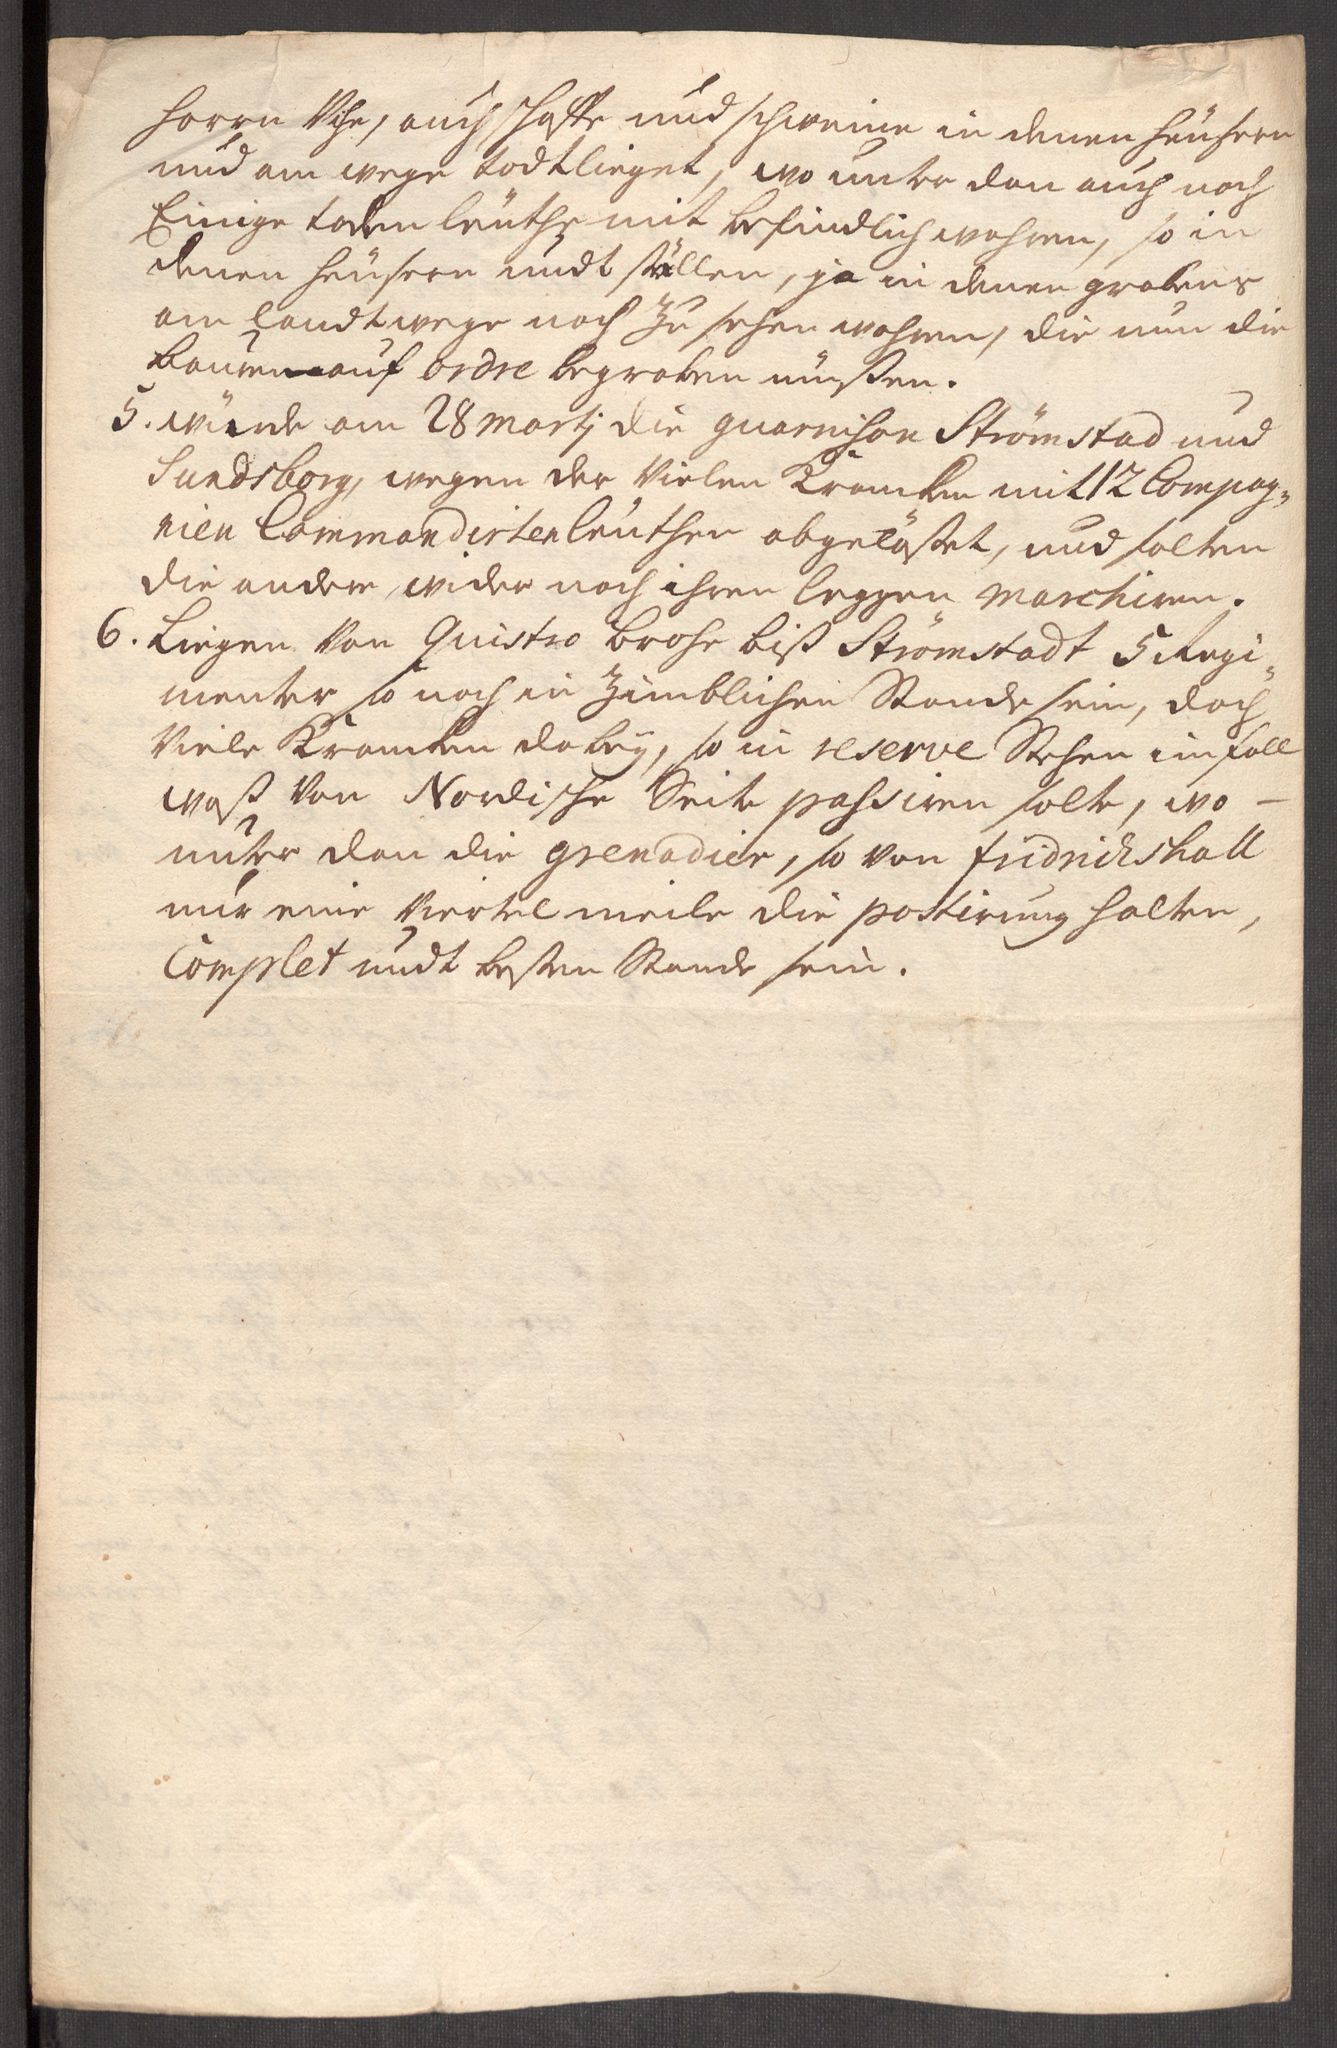 horn Vihe, auch schaffe und schweine in denen heüsern
und am wege todt lieget, wo unter dan auch noch
Einige toden leüthe mit befindlich wahren, so in
denen heüsern undt ställen, ja in denen grabens
am landtwege noch zu sehen wahren, die nun die
bauren auf ordre begraben müssen.
5. würde am 28 martij die guarnison Strömstad und
Sundsborg, wegen der Vielen Krancken mit 12 Compag=
nien Commandirten leüthen abgelösset, und solten
die andere wider nach ihren leggen marchiren.
6. Liegen Von Quistro brohe biß Strömstadt 5 Regi=
menter so noch in zimblichen Stande sein, doch
Viele Krancken dabey, so in reserve Stehen im fall
waß Von Nordische Seite passiren solte, wo-
unter dan die grenadier, so von fridrichshall
nur eine Viertel meile die postirung halten,
Complet undt besten Stande sein.